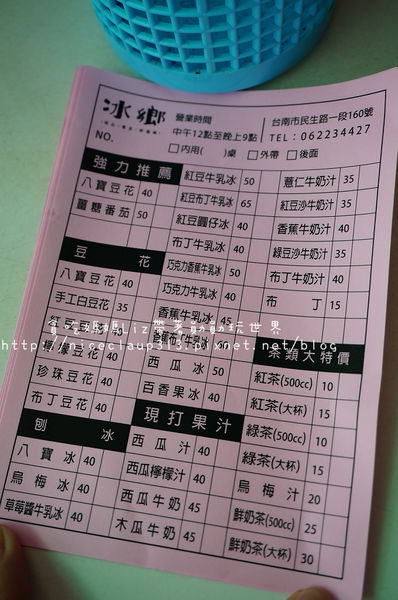 冰鄉
營業時間
中午12點至晚上9點
台南市民生路一段160號
TEL：062234427
NO.
內用( )桌 外帶 後面
強力推薦
八寶豆花 40
薑糖番茄 50
豆花
八寶豆花 40
手工白豆花 35
檸檬豆花 40
珍珠豆花 40
布丁豆花 40
刨冰
八寶冰 40
烏梅冰 40
草莓醬牛乳冰 40
紅豆牛乳冰 50
紅豆布丁牛乳冰 65
紅豆圓仔冰 40
布丁牛乳冰 40
巧克力香蕉牛乳冰 50
巧克力牛乳冰 40
香蕉牛乳冰 45
西瓜冰 50
百香果冰 40
現打果汁
西瓜汁 40
西瓜檸檬汁 40
西瓜牛奶 45
木瓜牛奶 45
薏仁牛奶汁 35
紅豆沙牛奶汁 35
香蕉牛奶汁 40
綠豆沙牛奶汁 35
布丁牛奶汁 40
布丁 15
茶類大特價
紅茶(500cc) 10
紅茶(大杯) 15
綠茶(500cc) 10
綠茶(大杯) 15
烏梅汁 20
鮮奶茶(500cc) 25
鮮奶茶(大杯) 30
貪吃媽媽Liz帶著趴趴玩世界
http://niceclaup313.pixnet.net/blog